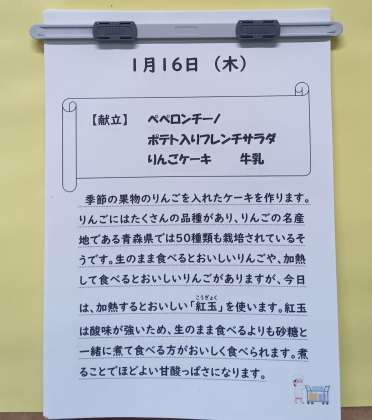 1月16日（木）
【献立】 ペペロンチーノ
ポテト入りフレンチサラダ
りんごケーキ 牛乳
季節の果物のりんごを入れたケーキを作ります。
りんごにはたくさんの品種があり、りんごの名産
地である青森県では50種類も栽培されているそ
うです。生のまま食べるとおいしいりんごや、加熱
して食べるとおいしいりんごがありますが、今日
は、加熱するとおいしい「紅玉」を使います。紅玉
は酸味が強いため、生のまま食べるよりも砂糖と
一緒に煮て食べる方がおいしく食べられます。煮
ることでほどよい甘酸っぱさになります。